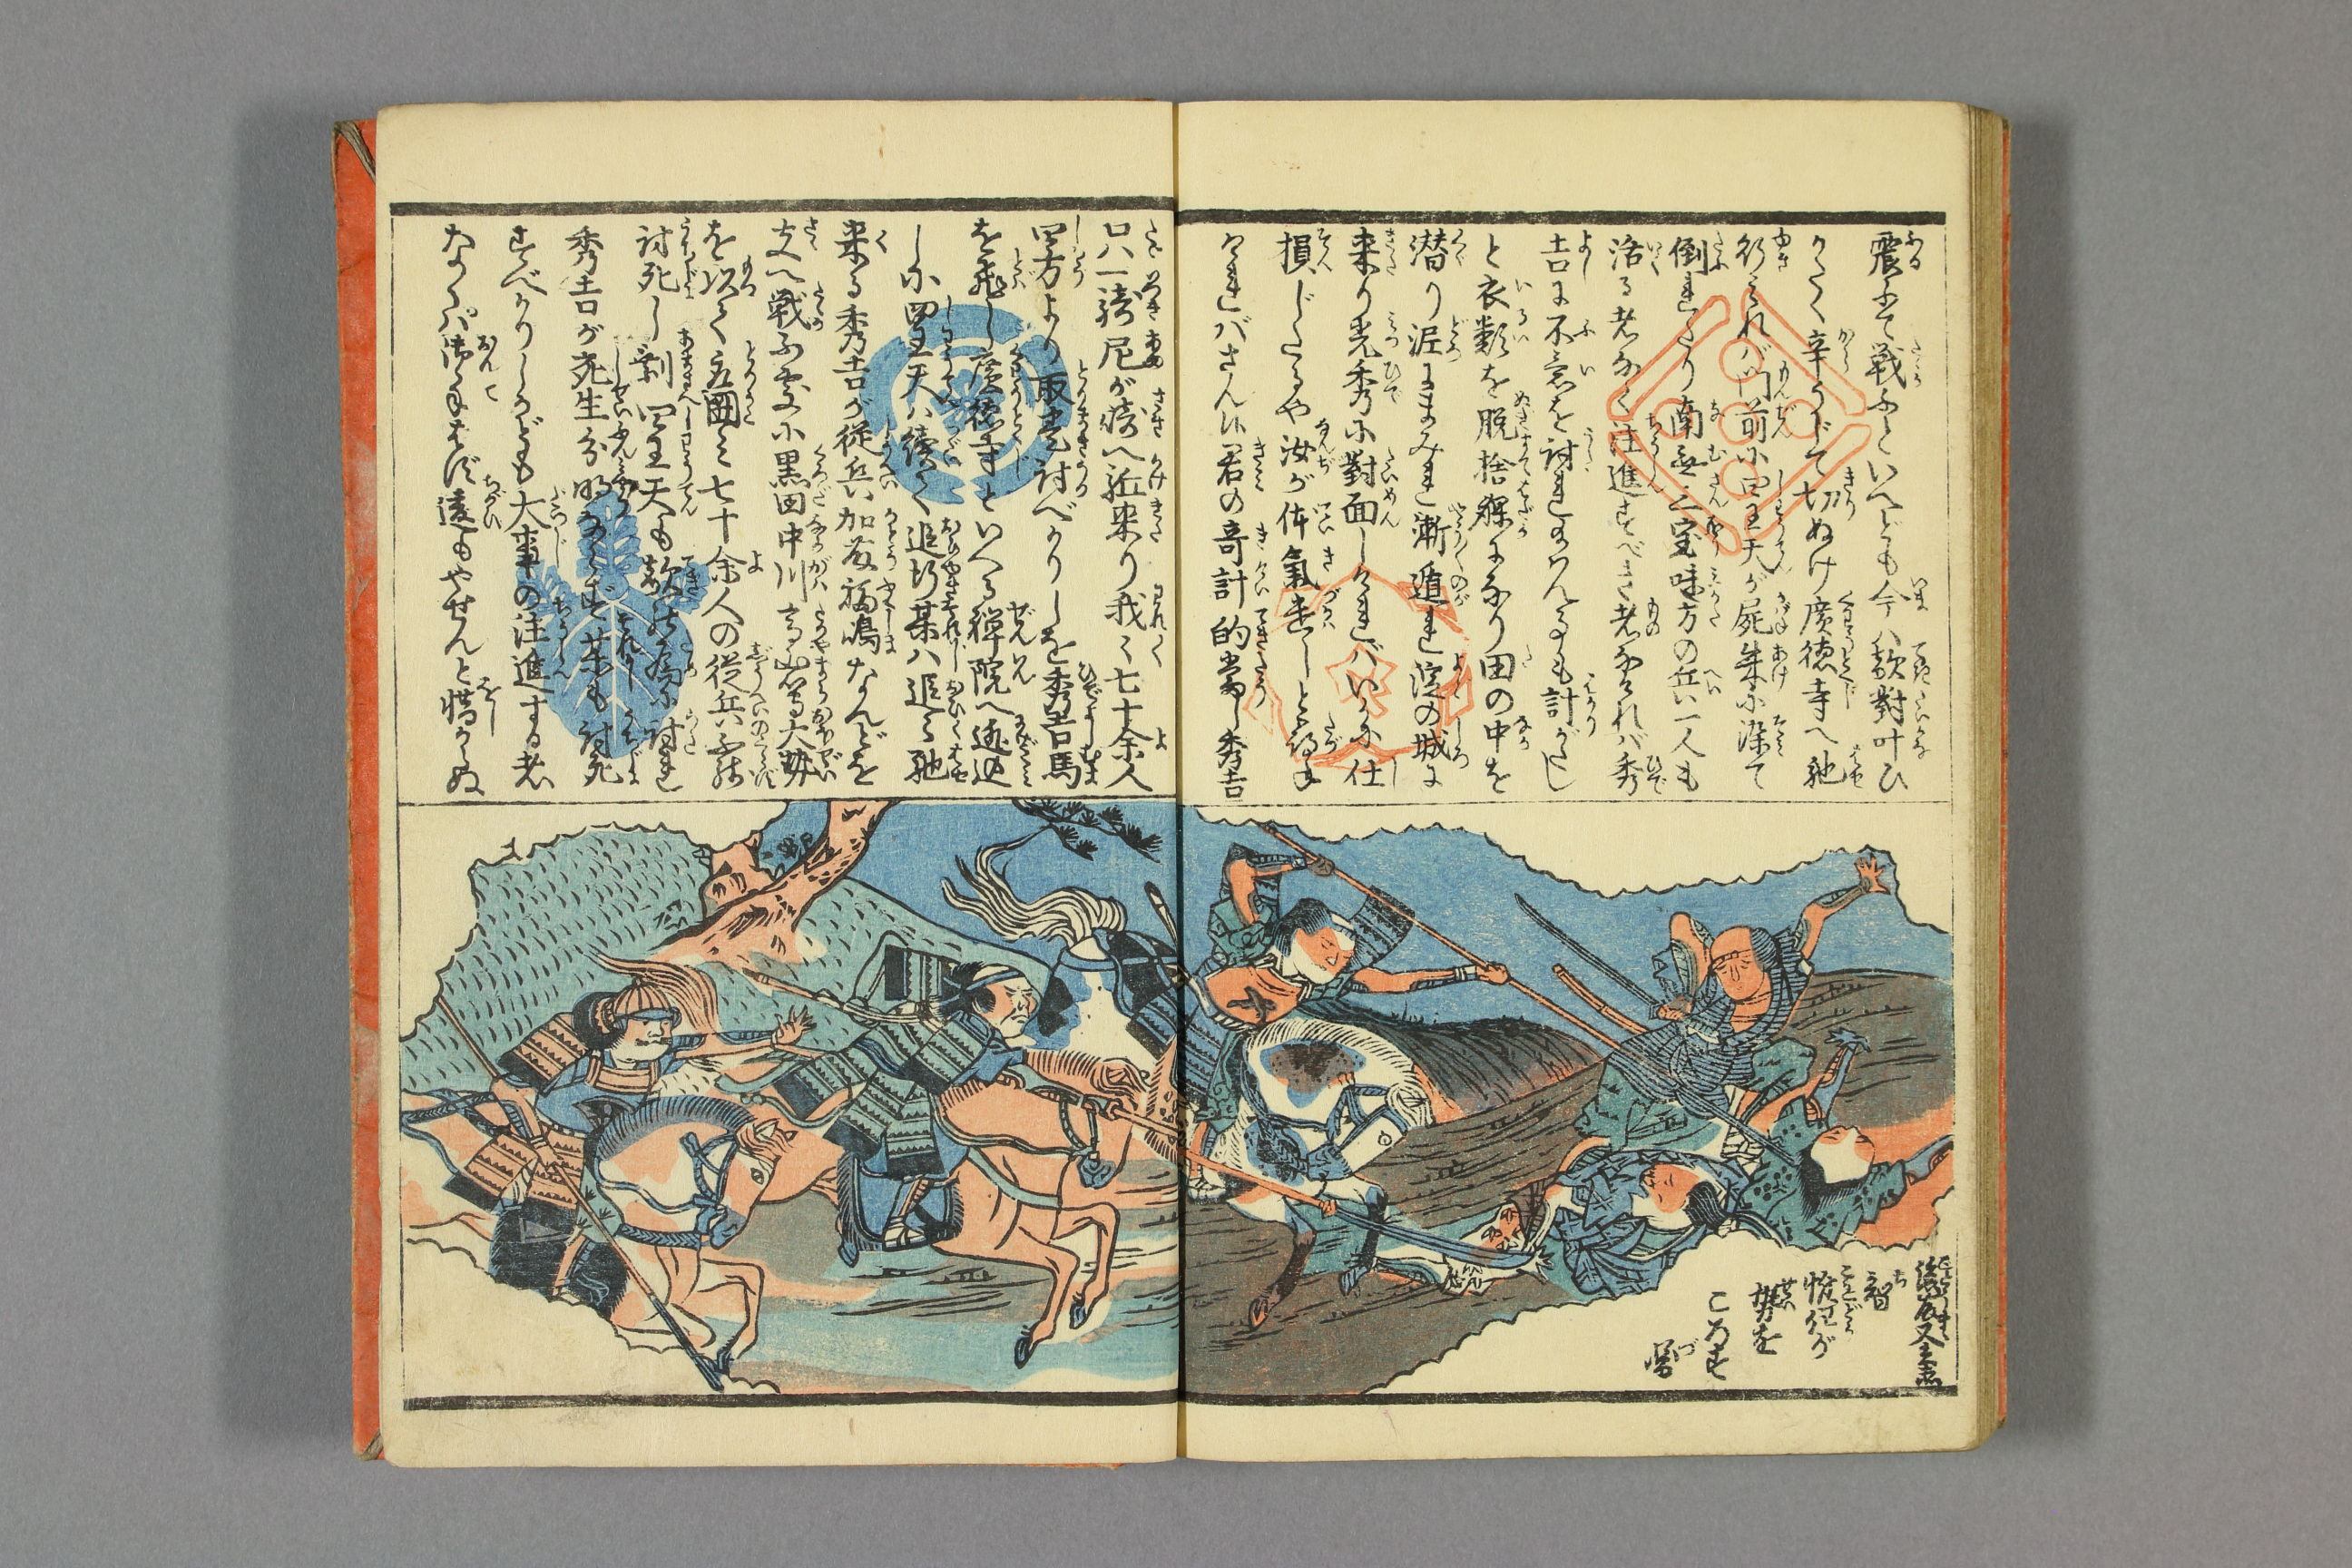 震ふて戦ふといへども今ハ敵對叶ひ
がたく辛うじて切ぬけ廣徳寺へ馳
行みれバ門前に四王天が屍朱に染て
倒れたり南無三宝味方の兵一人も
活る者なく注進すべき者なけれバ秀
吉に不意を討れ給ハん事も計がたし
と衣類を脱捨裸になり田の中を
潜り泥にまみれ漸遁れ淀の城に
来り光秀に對面しけれバいかに仕
損じたるや汝が体氣遣しと尋
けれバさん候君の奇計的當し秀吉
只一騎尼が崎へ近来り我々七十余人
四方より取巻討べかりしを秀吉馬
を飛し廣徳寺といへる禅院へ逃込
しに四王天ハ續く追行某ハ追々馳
来る秀吉が従兵加藤福嶋なんどを
支へ戦ふ処に黒田中川高山等大勢
を以て立囲ミ七十余人の従兵不残
討死し剰四王天も敵の為に討れ
秀吉が死生分明ならず某も討死
すべかりしかども大事の注進する者
なくハ御手はず違もやせんと惜からぬ
後藤又兵衛
智
惟任が
勢を
ころす
圖